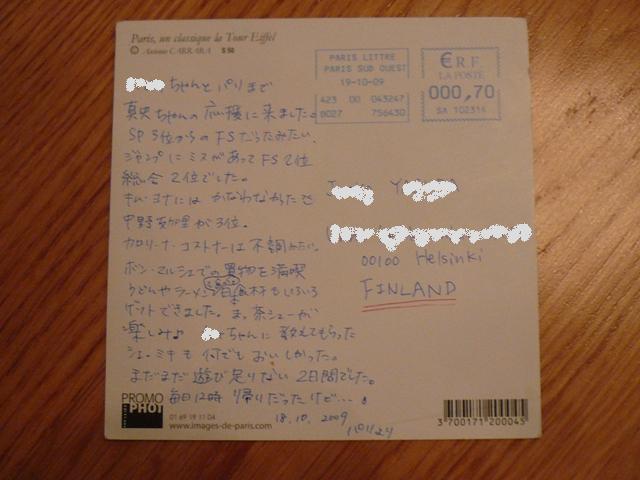 Paris, un classique la Tour Eiffel
© Antonio CARRARA S 50
PARIS LITTRE
PARIS SUD OUEST
19-10-09
423 00 043247
8027 756430
€ R.F.
LA POSTE
000,70
SA 102314
ちゃんと パリまで
真央ちゃんの応援に来ました。
SP 5位からの FSだったみたい、
ジャンプにミスがあって FS 2位
総合 2位でした。
キム・ヨナには かなわなかった
が3位。
カロリーナ・コストナーは不調みたい。
ボン・マルシェでの買物を満喫
うどんやラーメン 食材もいろいろ
ゲットできました。ま、茶シューが
楽しみ♪ ちゃんに教えてもらった
シェ・ミキも何でもおいしかった。
まだまだ遊び足りない 2日間でした。
毎日12時 帰りだったけど…。
18.10.2009
パリより
00100 Helsinki
FINLAND
PROMO
PHOT
01 69 19 11 04
www.images-de-paris.com
3 700171 200045